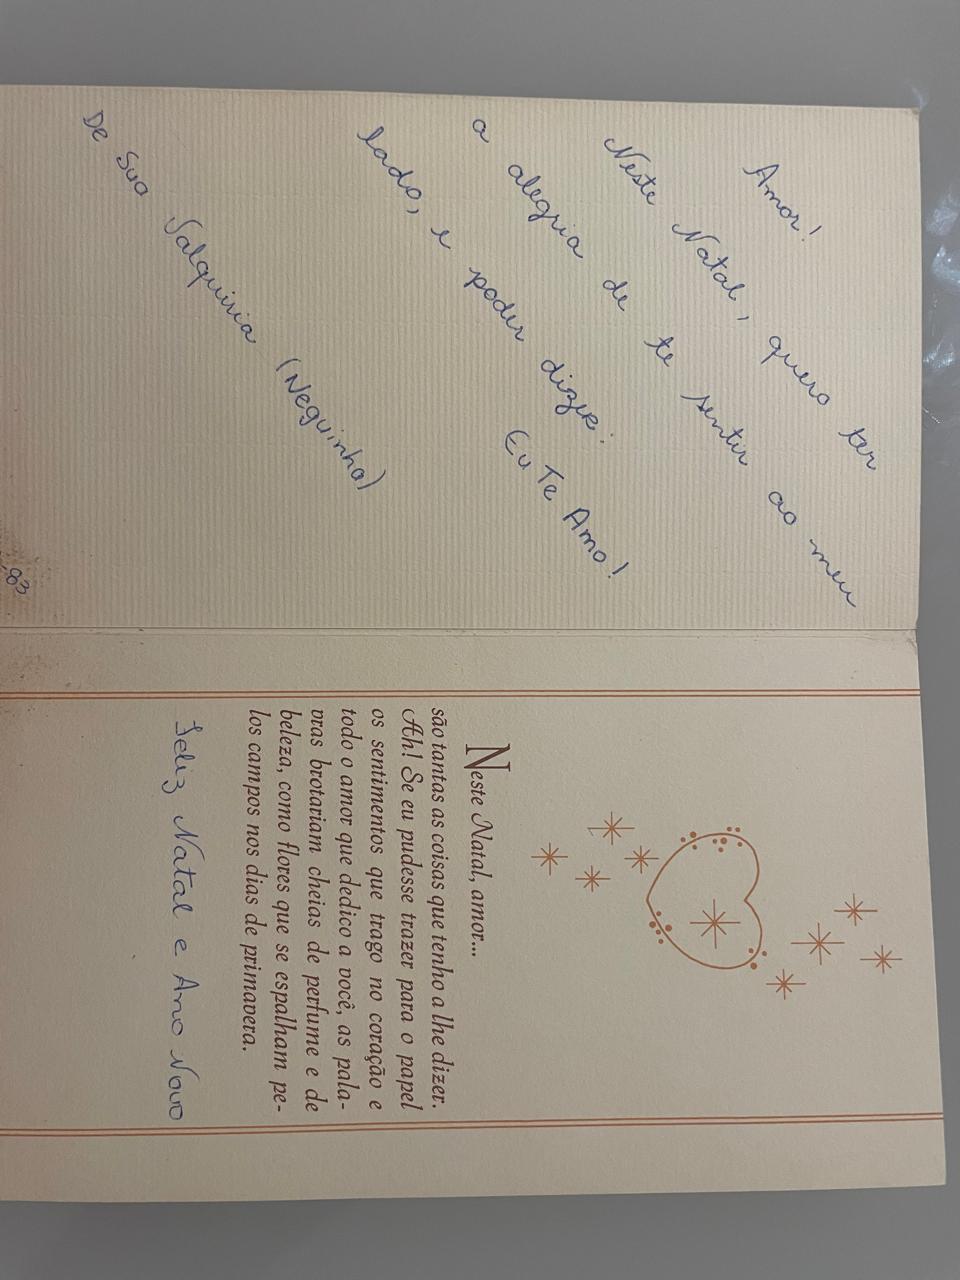 Amor!
Neste Natal, quero ter
a alegria de te sentir ao meu
lado, e poder dizer:
Eu Te Amo!
De Sua Valquiria (Neguinha)
-83
Neste Natal, amor...
são tantas as coisas que tenho a lhe dizer.
Ah! Se eu pudesse trazer para o papel
os sentimentos que trago no coração e
todo o amor que dedico a você, as pala-
vras brotariam cheias de perfume e de
beleza, como flores que se espalham pe-
los campos nos dias de primavera.
Feliz Natal e Ano Novo